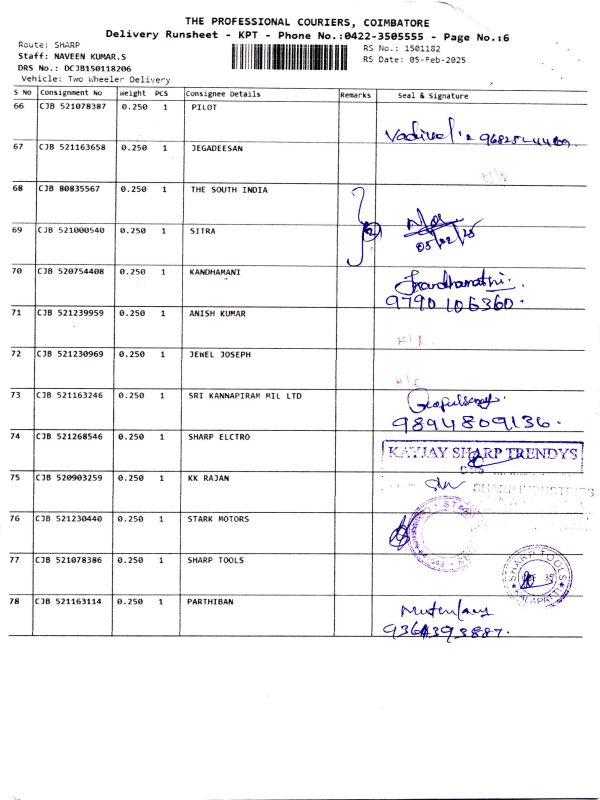 THE PROFESSIONAL COURIERS, COIMBATORE
Delivery Runsheet - KPT - Phone No.:0422-3505555 - Page No.:6
Route: SHARP
RS No.: 1501182
Staff: NAVEEN KUMAR.S
RS Date: 05-Feb-2025
DRS No.: DCJB150118206
Vehicle: Two Wheeler Delivery
S No Consignment No Weight PCS Consignee Details Remarks Seal & Signature
66 CJB 521078387 0.250 1 PILOT
67 CJB 521163658 0.250 1 JEGADEESAN
68 CJB 80835567 0.250 1 THE SOUTH INDIA
69 CJB 521000540 0.250 1 SITRA 2
05/02/25
70 CJB 520754408 0.250 1 KANDHAMANI
9790106360.
71 CJB 521239959 0.250 1 ANISH KUMAR
72 CJB 521230969 0.250 1 JEWEL JOSEPH
73 CJB 521163246 0.250 1 SRI KANNAPIRAM MIL LTD
9894809136.
74 CJB 521268546 0.250 1 SHARP ELCTRO KAYJAY SHARP TRENDYS
75 CJB 520903259 0.250 1 KK RAJAN SHARP INDUSTRIES
76 CJB 521230440 0.250 1 STARK MOTORS
77 CJB 521078386 0.250 1 SHARP TOOLS SHARP TOOLS
78 CJB 521163114 0.250 1 PARTHIBAN